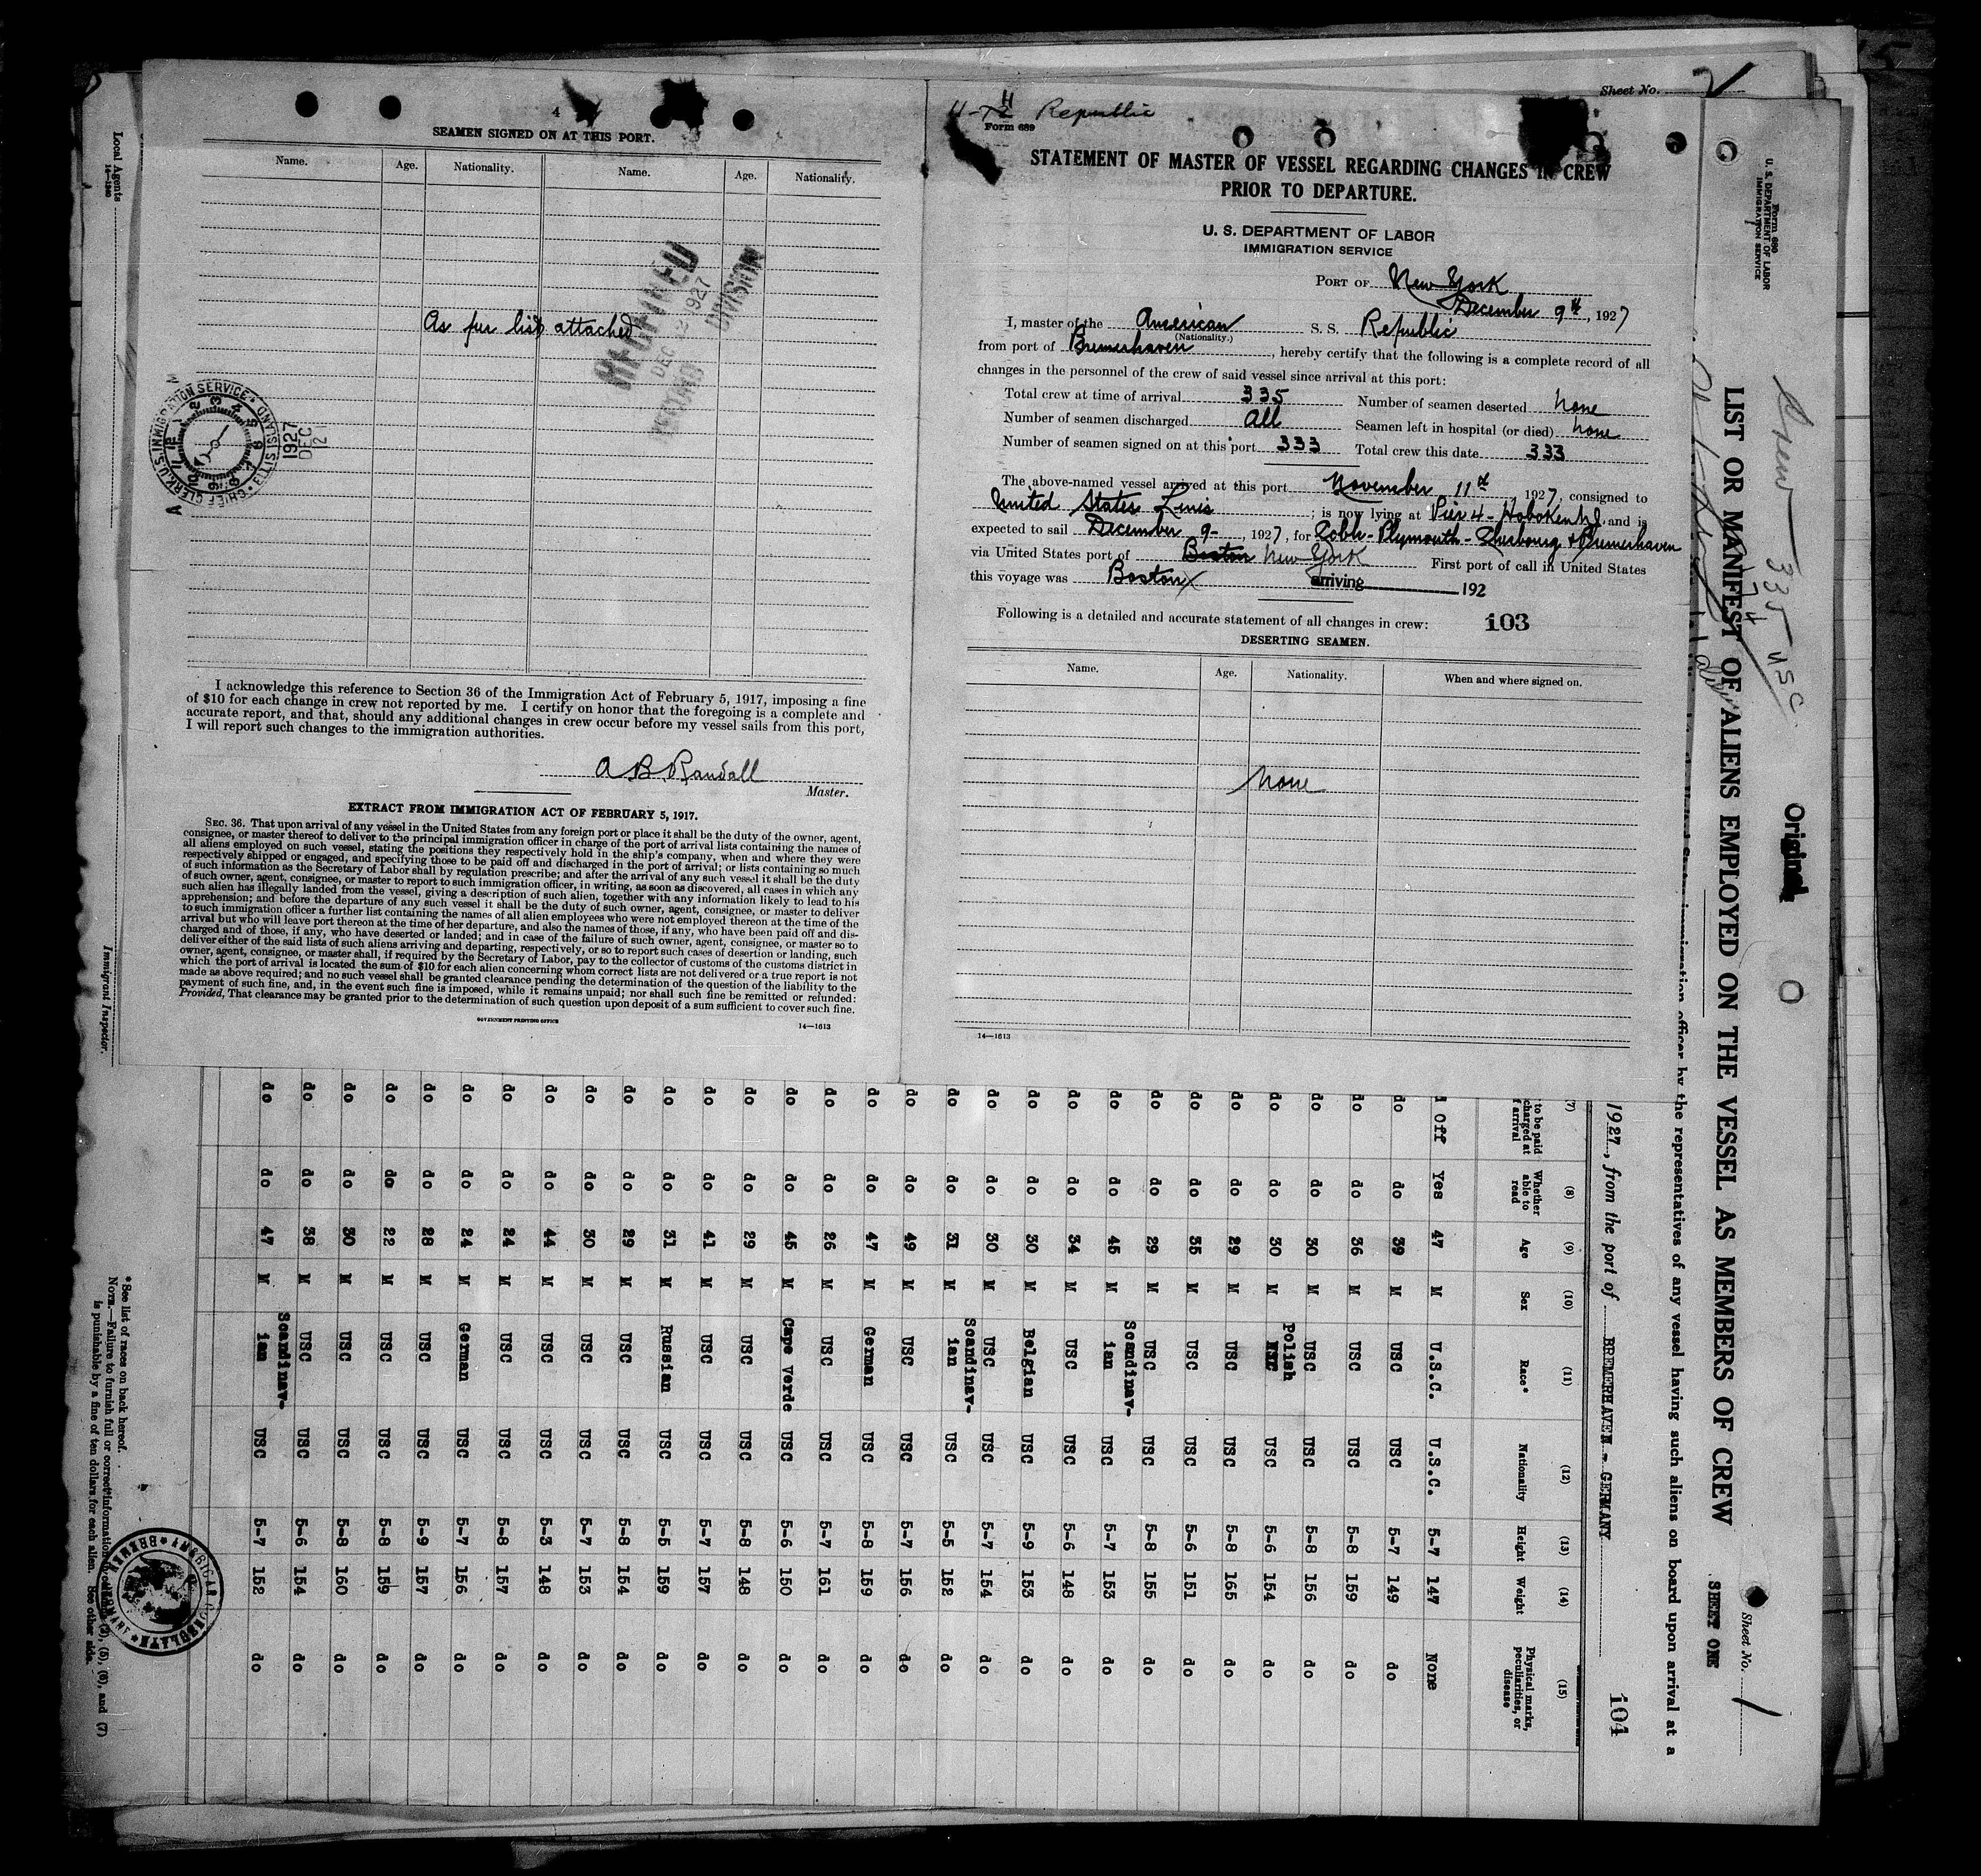 4
SEAMEN SIGNED ON AT THIS PORT.
Name. Age. Nationality. Name. Age. Nationality.
As per list attached
DEC 12 1927
DIVISION
CHIEF CLERK, U.S. IMMIGRATION SERVICE
ELLIS ISLAND
1927
DEC
12
I acknowledge this reference to Section 36 of the Immigration Act of February 5, 1917, imposing a fine
of $10 for each change in crew not reported by me. I certify on honor that the foregoing is a complete and
accurate report, and that, should any additional changes in crew occur before my vessel sails from this port,
I will report such changes to the immigration authorities.
A B Randall
Master.
EXTRACT FROM IMMIGRATION ACT OF FEBRUARY 5, 1917.
SEC. 36. That upon arrival of any vessel in the United States from any foreign port or place it shall be the duty of the owner, agent,
consignee, or master thereof to deliver to the principal immigration officer in charge of the port of arrival lists containing the names of
all aliens employed on such vessel, stating the positions they respectively hold in the ship's company, when and where they were
respectively shipped or engaged, and specifying those to be paid off and discharged in the port of arrival; or lists containing so much
of such information as the Secretary of Labor shall by regulation prescribe; and after the arrival of any such vessel it shall be the duty
of such owner, agent, consignee, or master to report to such immigration officer, in writing, as soon as discovered, all cases in which any
such alien has illegally landed from the vessel, giving a description of such alien, together with any information likely to lead to his
apprehension; and before the departure of any such vessel it shall be the duty of such owner, agent, consignee, or master to deliver
to such immigration officer a further list containing the names of all alien employees who were not employed thereon at the time of the
arrival but who will leave port thereon at the time of her departure, and also the names of those, if any, who have been paid off and dis-
charged and of those, if any, who have deserted or landed; and in case of the failure of such owner, agent, consignee, or master so to
deliver either of the said lists of such aliens arriving and departing, respectively, or so to report such cases of desertion or landing, such
owner, agent, consignee, or master shall, if required by the Secretary of Labor, pay to the collector of customs of the customs district in
which the port of arrival is located the sum of $10 for each alien concerning whom correct lists are not delivered or a true report is not
made as above required; and no such vessel shall be granted clearance pending the determination of the question of the liability to the
payment of such fine, and, in the event such fine is imposed, while it remains unpaid; nor shall such fine be remitted or refunded:
Provided, That clearance may be granted prior to the determination of such question upon deposit of a sum sufficient to cover such fine.
GOVERNMENT PRINTING OFFICE 14—1613
Republic
Form 689
STATEMENT OF MASTER OF VESSEL REGARDING CHANGES IN CREW
PRIOR TO DEPARTURE.
U. S. DEPARTMENT OF LABOR
IMMIGRATION SERVICE
PORT OF New York
December 9th, 1927
I, master of the American S. S. Republic
(Nationality.)
from port of Bremerhaven, hereby certify that the following is a complete record of all
changes in the personnel of the crew of said vessel since arrival at this port:
Total crew at time of arrival 335 Number of seamen deserted None
Number of seamen discharged All Seamen left in hospital (or died) None
Number of seamen signed on at this port 333 Total crew this date 333
The above-named vessel arrived at this port November 11th, 1927, consigned to
United States Lines; is now lying at Pier 4 - Hoboken NJ, and is
expected to sail December 9-, 1927, for Cobh - Plymouth - Cherbourg & Bremerhaven
via United States port of Boston New York First port of call in United States
this voyage was Boston arriving 192
Following is a detailed and accurate statement of all changes in crew: 103
DESERTING SEAMEN.
Name. Age. Nationality. When and where signed on.
None
14—1613
Sheet No. 2
Local Agents
14—1240
Immigrant Inspector.
Form 680
U. S. DEPARTMENT OF LABOR
IMMIGRATION SERVICE
Crew 335
USC
Original
LIST OR MANIFEST OF ALIENS EMPLOYED ON THE VESSEL AS MEMBERS OF CREW
SHEET ONE
Sheet No. 1
officer by the representatives of any vessel having such aliens on board upon arrival at a
1927, from the port of BREMERHAVEN - GERMANY
104
(7) (8) (9) (10) (11) (12) (13) (14) (15)
to be paid Whether able to read Age Sex Race* Nationality Height Weight Physical marks, peculiarities, or disease
Off Yes 47 M U.S.C. U.S.C. 5-7 147 None
do do 39 M USC USC 5-7 149 do
do do 36 M USC USC 5-8 159 do
do do 30 M USC USC 5-8 156 do
do do 30 M Polish USC 5-6 154 do
do do 29 M USC USC 5-8 165 do
do do 35 M USC USC 5-6 151 do
do do 29 M USC USC 5-8 155 do
do do 45 M Scandinav-ian USC 5-7 153 do
do do 34 M USC USC 5-6 148 do
do do 30 M Belgian USC 5-9 153 do
do do 30 M USC USC 5-7 154 do
do do 31 M Scandinav-ian USC 5-5 152 do
do do 49 M USC USC 5-7 156 do
do do 47 M German USC 5-8 159 do
do do 26 M USC USC 5-7 161 do
do do 45 M Cape Verde USC 5-6 150 do
do do 29 M USC USC 5-8 148 do
do do 41 M USC USC 5-7 157 do
do do 31 M Russian USC 5-5 159 do
do do 29 M USC USC 5-8 154 do
do do 30 M USC USC 5-7 153 do
do do 44 M USC USC 5-3 148 do
do do 24 M USC USC 5-8 157 do
do do 24 M German USC 5-7 156 do
do do 28 M USC USC 5-9 157 do
do do 22 M USC USC 5-8 159 do
do do 30 M USC USC 5-8 160 do
do do 38 M USC USC 5-6 154 do
do do 47 M Scandinav-ian USC 5-7 152 do
* See list of races on back hereof.
NOTE.—Failure to furnish full or correct information (5), (6), and (7)
is punishable by a fine of ten dollars for each alien. See other side.
AMERICAN CONSULATE
BREMEN GERMANY